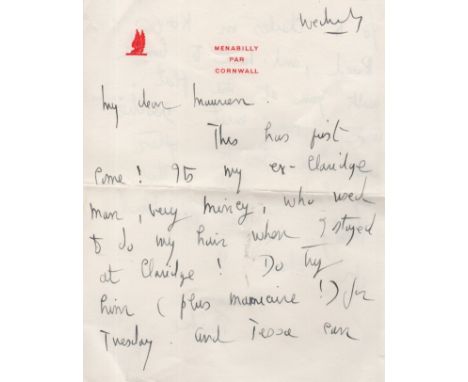 Wednesday
MENABILLY
PAR
CORNWALL
My dear Maureen.
This has just
come! Its my ex-Claridge
man, very mincey, who used
to do my hair when I stayed
at Claridge! Do try
him (plus manicure!) for
Tuesday. and Tessa can